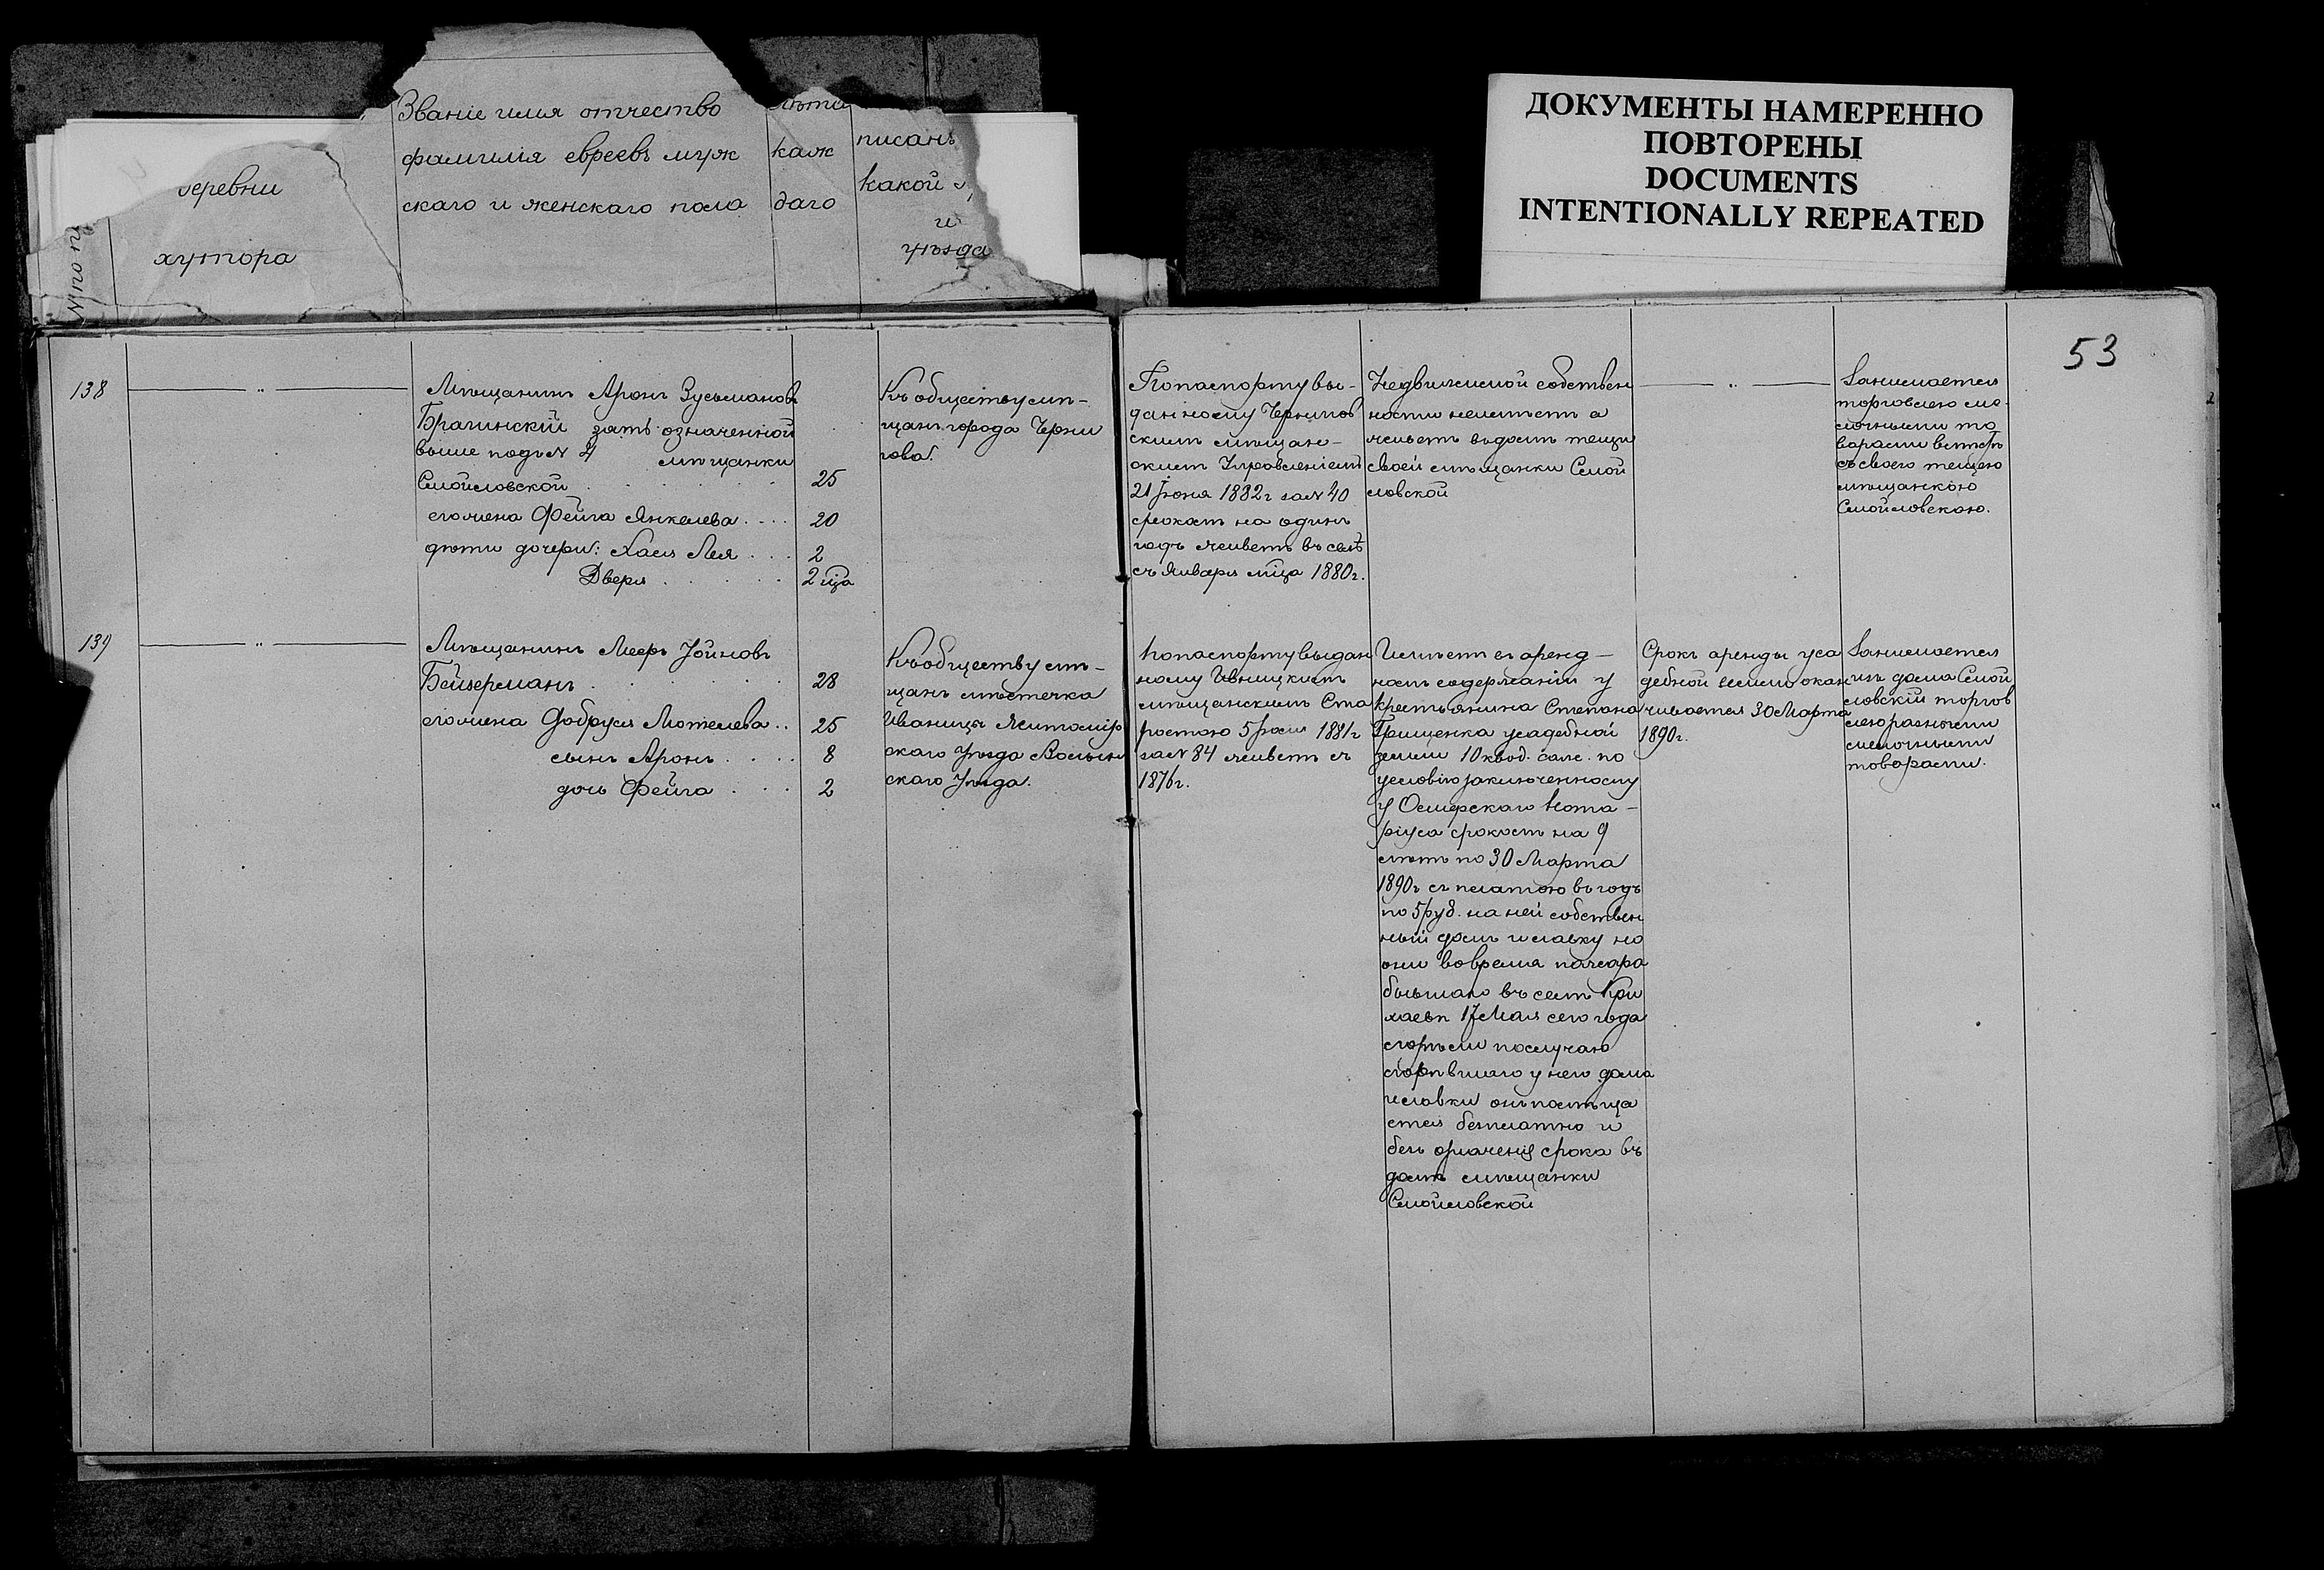 ДОКУМЕНТЫ НАМЕРЕННО
ПОВТОРЕНЫ
DOCUMENTS
INTENTIONALLY REPEATED
деревни
хутора
Званіе имя отчество
фамилія евреевъ муж
скаго и женскаго пола
Лѣта
каж
даго
писанъ
какой
и
уѣзда
53
138
Мѣщанинъ Аронъ Зусьмановъ
Брагинскій зять означенной
выше подъ № 4 мѣщанки
Смойловской 25
его жена Фейга Янкелева 20
дѣти дочери: Хася Лея 2
Двера 2 мца
Къ обществу мѣ-
щанъ города Черни
гова.
По паспорту вы-
данному Чернигов
скимъ мѣщан-
скимъ Управленіемъ
21 Іюня 1882 г за № 40
срокомъ на одинъ
годъ живетъ въ селѣ
съ Января мца 1880 г.
Недвижимой собствен
ности неимѣетъ а
живетъ въ домѣ тещи
своей мѣщанки Смой
ловской
Занимается
торговлею ме-
лочными то
варами вмѣстѣ
съ своею тещею
мѣщанкою
Смойловскою.
139
Мѣщанинъ Мееръ Іойновъ
Бейзерманъ 28
его жена Добруся Мотелева 25
сынъ Аронъ 8
дочь Фейга 2
Къ обществу мѣ-
щанъ мѣстечка
Иваницы Житомір
скаго Уѣзда Волын
скаго Уѣзда.
По паспорту выдан
ному Ивницкимъ
мѣщанскимъ Ста
ростою 5 1881 г
за № 84 живетъ съ
1876 г.
Имѣетъ въ аренд-
номъ содержаніи у
крестьянина Степана
Грищенка усадебной
земли 10 квад. саж. по
условію заключенному
у Остерскаго Нота-
ріуса срокомъ на 9
лѣтъ по 30 Марта
1890 г съ платою въ годъ
по 5 руб. на ней собствен
ный домъ и лавку но
они во время пожара
бывшаго въ селѣ Кри
хаевѣ 17 Мая сего года
сгорѣли по случаю
сгорѣвшаго у него дома
и лавки онъ помѣща
ется безплатно и
безъ означенія срока въ
домѣ мѣщанки
Смойловской
Срокъ аренды уса
дебной земли окан
чивается 30 Марта
1890 г.
Занимается
въ домѣ Смой
ловской торгов
лею разными
мелочными
товарами.